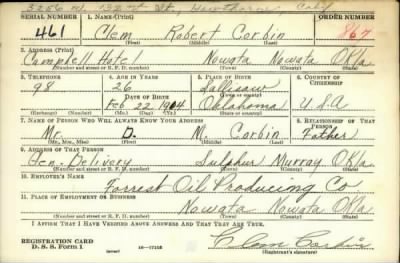 3256 W. 132nd St, Hawthorne Calif
SERIAL NUMBER 1. NAME (Print) ORDER NUMBER
461 Clem Robert Corbin 867
(First) (Middle) (Last)
2. ADDRESS (Print)
Campbell Hotel Nowata Nowata Okla
(Number and street or R. F. D. number) (Town) (County) (State)
3. TELEPHONE 4. AGE IN YEARS 5. PLACE OF BIRTH 6. COUNTRY OF CITIZENSHIP
98 26 Sallisaw
DATE OF BIRTH (Town or county)
Feb 22 1914 Oklahoma U.S.A
(Exchange) (Number) (Mo.) (Day) (Yr.) (State or country)
7. NAME OF PERSON WHO WILL ALWAYS KNOW YOUR ADDRESS 8. RELATIONSHIP OF THAT PERSON
Mr. D. N. Corbin Father
(Mr., Mrs., Miss) (First) (Middle) (Last)
9. ADDRESS OF THAT PERSON
Gen. Delivery Sulphur Murray Okla
(Number and street or R. F. D. number) (Town) (County) (State)
10. EMPLOYER'S NAME
Forrest Oil Producing Co
11. PLACE OF EMPLOYMENT OR BUSINESS
Nowata Nowata Okla
(Number and street or R. F. D. number) (Town) (County) (State)
I AFFIRM THAT I HAVE VERIFIED ABOVE ANSWERS AND THAT THEY ARE TRUE.
REGISTRATION CARD
D. S. S. Form 1 Clem Corbin
(Registrant's signature)